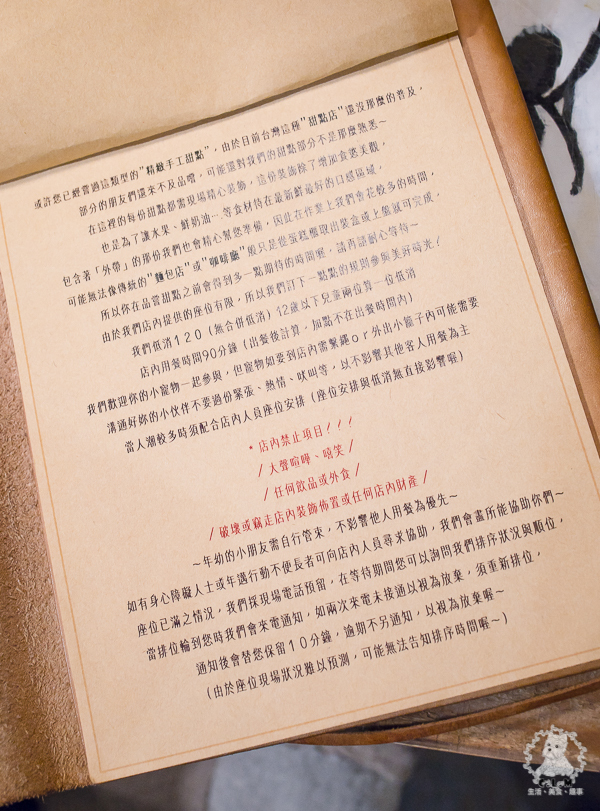 或許您已經嘗過這類型的"精緻手工甜點"，由於目前台灣這種"甜點店"還沒那麼的普及，
部分的朋友們還來不及品嚐，可能還對我們的甜點部分不是那麼熟悉~
在這裡的每份甜點都需現場精心裝飾，這份裝飾除了增加食慾美觀，
也是為了讓水果、鮮奶油…等食材待在最新鮮最好的口感區域，
包含著「外帶」的那份我們也會精心幫您準備，因此在作業上我們會花較多的時間，
可能無法像傳統的"麵包店"或"咖啡廳"般只是從蛋糕櫃取出裝盒或上盤就可完成，
所以你在品嘗甜點之前會得到多一點期待的時間喔，請再請耐心等待~
由於我們店內提供的座位有限，所以我們訂下一點點的規則參與美好時光！
我們低消120（無合併低消）12歲以下兒童兩位算一位低消
店內用餐時間90分鐘（出餐後計算，加點不在出餐時間內）
我們歡迎你的小寵物一起參與，但寵物如要到店內需繫繩or外出小籠子內可能需要
溝通好妳的小伙伴不要過份緊張、熱情、吠叫等，以不影響其他客人用餐為主
當人潮較多時須配合店內人員座位安排（座位安排與低消無直接影響喔）
*店內禁止項目！！！
/大聲喧嘩、嘻笑/
/任何飲品或外食/
/破壞或竊走店內裝飾佈置或任何店內財產/
~年幼的小朋友需自行管束，不影響他人用餐為優先~
如有身心障礙人士或年邁行動不便長者可向店內人員尋求協助，我們會盡所能協助你們~
座位已滿之情況，我們採現場電話預留，在等待期間您可以詢問我們排序狀況與順位，
當排位輪到您時我們會來電通知，如兩次來電未接通以視為放棄，須重新排位，
通知後會替您保留10分鐘，逾期不另通知，以視為放棄喔~
（由於座位現場狀況難以預測，可能無法告知排序時間喔~）
生活、美食、趣事